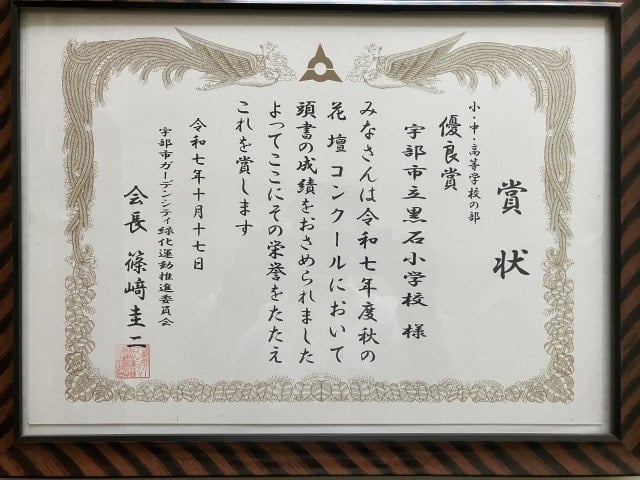 賞状
小・中・高等学校の部
優良賞
宇部市立黒石小学校 様
みなさんは令和七年度秋の
花壇コンクールにおいて
頭書の成績をおさめられました
よってここにその栄誉をたたえ
これを賞します
令和七年十月十七日
宇部市ガーデンシティ緑化運動推進委員会
会長 篠﨑圭二